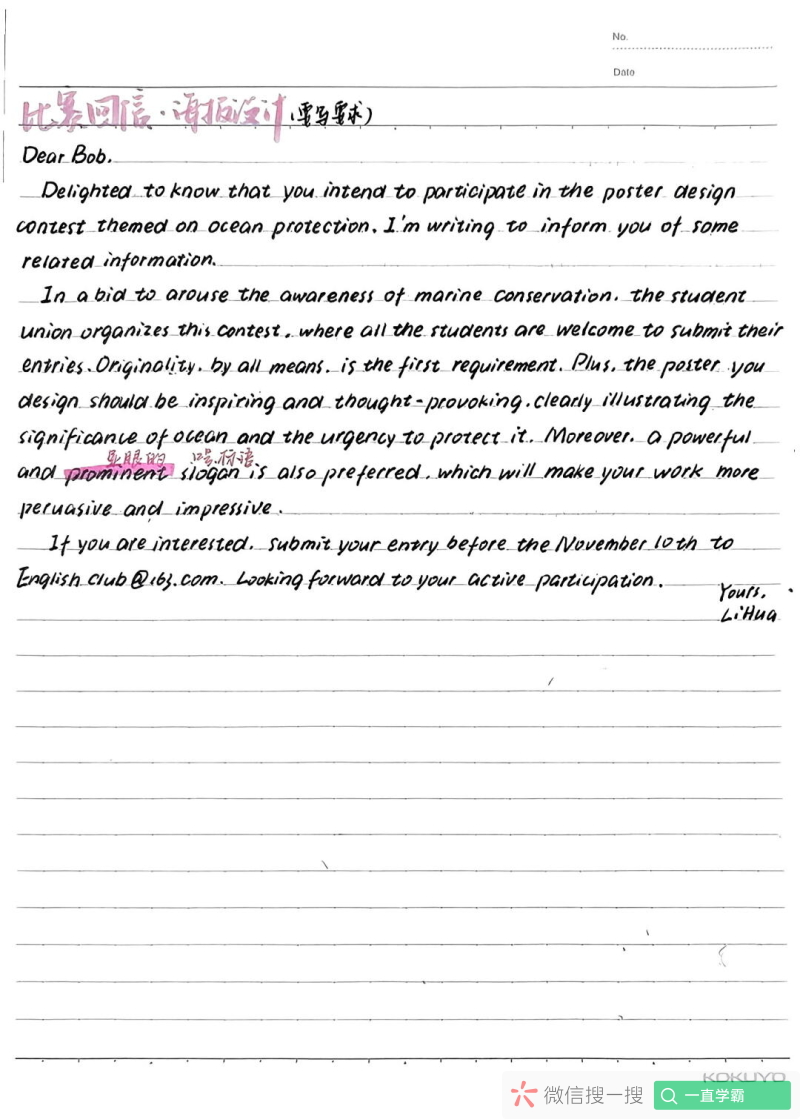 No.
Date
比赛回信·海报设计(要写要求)
Dear Bob.
Delighted to know that you intend to participate in the poster design
contest themed on ocean protection. I'm writing to inform you of some
related information.
In a bid to arouse the awareness of marine conservation. the student
union organizes this contest. where all the students are welcome to submit their
entries. Originality. by all means. is the first requirement. Plus. the poster you
design should be inspiring and thought-provoking. clearly illustrating the
significance of ocean and the urgency to protect it. Moreover. a powerful
显眼的 口号.标语
and prominent slogan is also preferred. which will make your work more
peruasive and impressive.
If you are interested. submit your entry before the November 10th to
English club@163.com. Looking forward to your active participation.
Yours.
Li Hua
KOKUYO
微信搜一搜 一直学霸